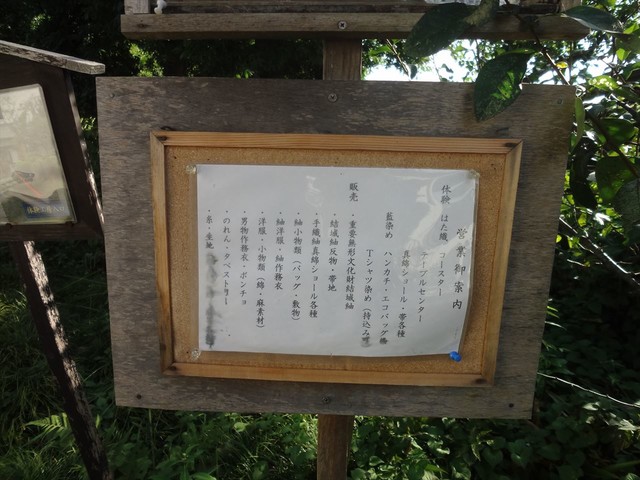 営業御案内
体験 はた織 コースター
テーブルセンター
真綿ショール・帯各種
藍染め ハンカチ・エコバッグ
Tシャツ染め(持込み可
販売 ・重要無形文化財結城紬
・結城紬反物・帯地
・手織紬真綿ショール各種
・紬小物類(バッグ・敷物)
・紬洋服・紬作務衣
・洋服・小物類(綿・麻素材)
・男物作務衣・ポンチョ
・のれん・タペストリー
・糸・生地